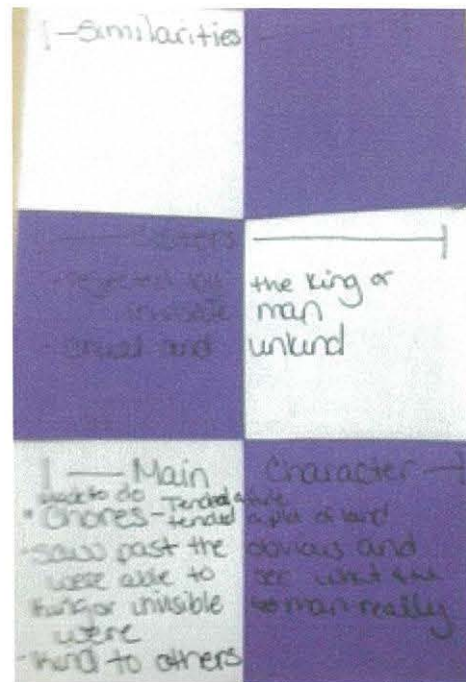 Similarities
Sisters
- rejected by the King or
invisible man
- cruel and unkind
Main Character
Made to do Tended a fire
• Chores - tended a plot of land
- saw past the obvious and
were able to see what the
King or invisible man really
were
- Kind to others